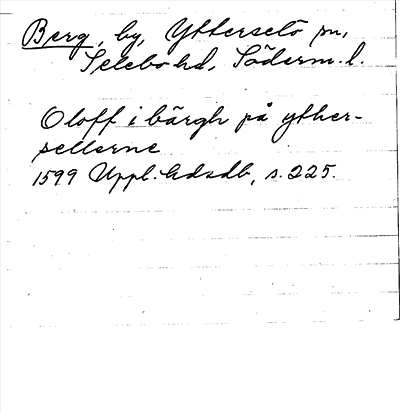 Berg, by, Ytterselö sn,
Selebo hd, Söderm. l.
Oloff i bärgh på yther-
sellerne
1599 Uppl. hdsdb, s. 225.